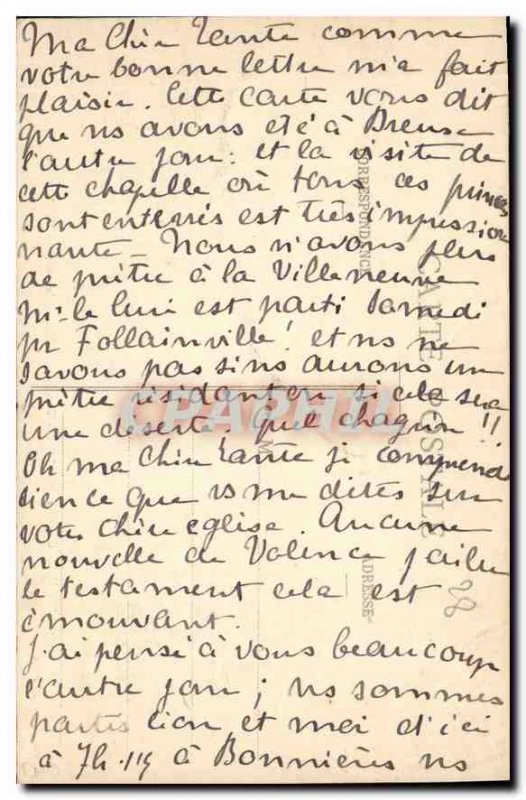 Ma Chère Tante comme
votre bonne lettre m'a fait
plaisir. Cette carte vous dit
que ns avons été à Dreux
l'autre jour : et la visite de
cette chapelle où tous ces princes
sont enterrés est très impression
nante - Nous n'avons plus
de prêtre à la Villeneuve
Mr le Curé est parti Samedi
pr Follainville ! et ns ne
savons pas si ns aurons un
prêtre résidant ou si cela sera
une deserte ! quel chagrin !!
Oh ma Chère Tante je comprends
bien ce que vs me dites sur
votre chère eglise. Aucune
nouvelle de Valence j'ai lu
le testament cela est
émouvant.
J'ai pensé à vous beaucoup
l'autre jour ; ns sommes
partis Léon et moi d'ici
à 7h. 1/4 à Bonnières ns
CORRESPONDANCE
CARTE POSTALE
ADRESSE
28
CPAPHIL